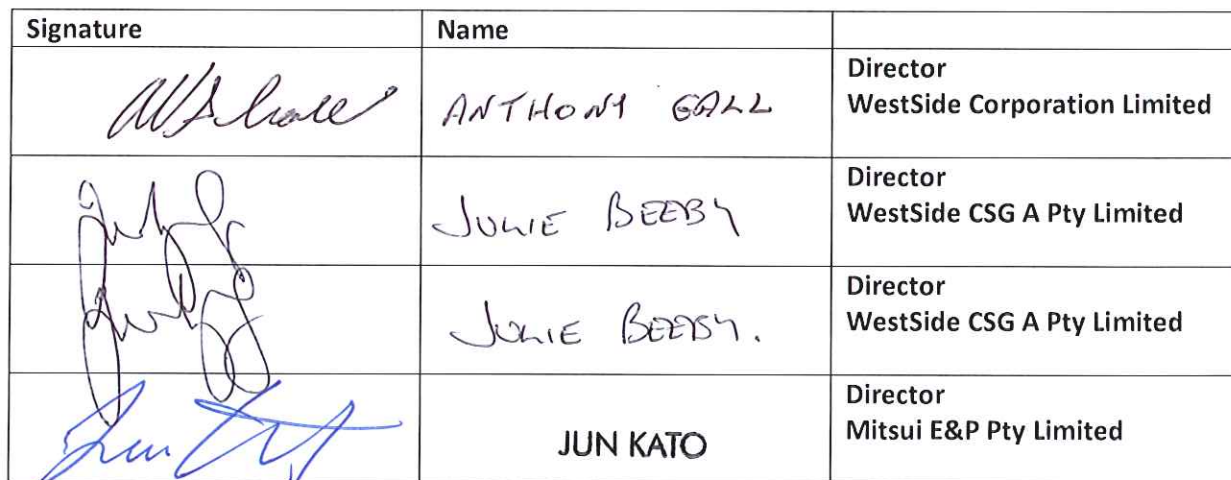 Signature Name
ANTHONY GALL
Director
WestSide Corporation Limited
JULIE BEEBY
Director
WestSide CSG A Pty Limited
JULIE BEEBY.
Director
WestSide CSG A Pty Limited
JUN KATO
Director
Mitsui E&P Pty Limited